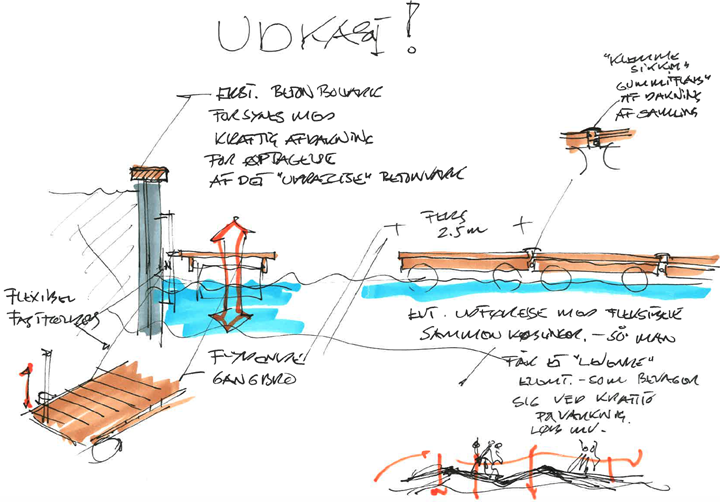 UDKAST!
EKST. BETON BOLVÆRK
FORSYNES MED
KRAFTIG AFDÆKNING
FOR OPTAGELSE
AF DET "UPRÆCISE" BETONVÆRK
"KLEMME
SIKKER"
GUMMI
AFDÆKNING
AF SAMLING
F.EKS
2.5 M
FLEXIBEL
FLYDENDE
GANGBRO
EVT. UDFØRELSE MED FLEKSIBLE
SAMMENKOBLINGER. - SÅ MAN
FÅR ET "LEVENDE"
ELEMT. - SOM BEVÆGER
SIG VED KRAFTIG
PÅVIRKNING.
LØB MV.